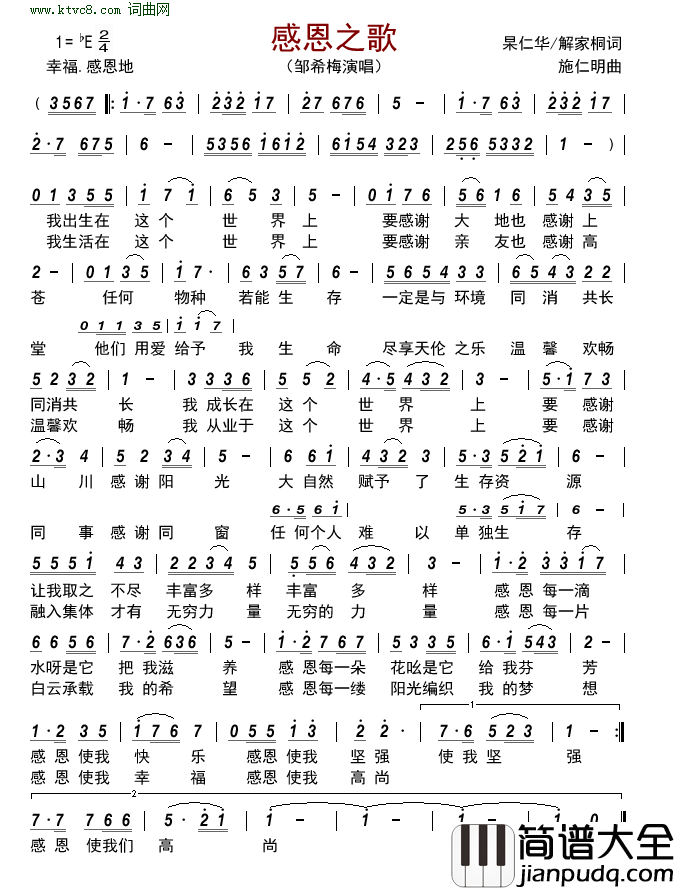 www.ktvc8.com 词曲网
感恩之歌
1=♭E 2/4
杲仁华/解家桐词
幸福.感恩地
（邹希梅演唱）
施仁明曲
( 3567 |: 1·7 63 | 232 17 | 27 676 | 5 - | 1·7 63 | 232 17 |
2·7 675 | 6 - | 5356 1612 | 6154 323 | 256 5332 | 1 - ) |
01 35 5 | 1 7 1 | 6 5 3 | 5 - | 01 76 | 56 16 | 54 35 |
我出生在 这个 世界上 要感谢 大地也 感谢上
我生活在 这个 世界上 要感谢 亲友也 感谢高
2 - | 01 35 | 1 7· | 63 57 | 6 - | 565 433 | 6543 22 |
苍 任何 物种 若能生 存 一定是与环境 同消共长
0113 5 | 1 1 7
堂 他们用爱给予 我生 命 尽享天伦之乐 温馨欢畅
52 32 | 1 - | 3 336 | 5 2 5 | 4·5 432 | 3 - | 5·1 73 |
同消共 长 我成长在 这个 世界 上 要感谢
温馨欢 畅 我从业于 这个 世界 上 要感谢
2·3 4 | 52 34 | 5 - | 6 61 | 42 2 | 5·3 521 | 6 - |
山川 感谢阳 光 大自然 赋予了 生存资 源
6·5 6 61 | 5·3 521
同事 感谢同 窗 任何个人 难以 单独生 存
5551 43 | 222 34 5 | 325 6 | 432 | 3 - | 1·2 | 3317 |
让我取之不尽 丰富多 样 丰富 多 样 感恩每一滴
融入集体才有 无穷力 量 无穷的 力 量 感恩每一片
6 656 | 7·2 636 | 5 - | 1·2 767 | 5 335 | 6·1 543 | 2 - |
水呀是它 把我滋 养 感恩每一朵 花吆是它 给我芬 芳
白云承载 我的希 望 感恩每一缕 阳光编织 我的梦 想
1·2 35 | 176 7 | 5 - | 055 13 | 2 2· | 7·6 523 | 1 - :|
1
感恩使我 快乐 感恩使我 坚强 使我坚 强
感恩使我 幸福 感恩使我 高尚
2
7·7 766 | 5· 21 | 1 - | 1 - | 1 -
感恩 使我们 高 尚
简谱大全
jianpudq.com